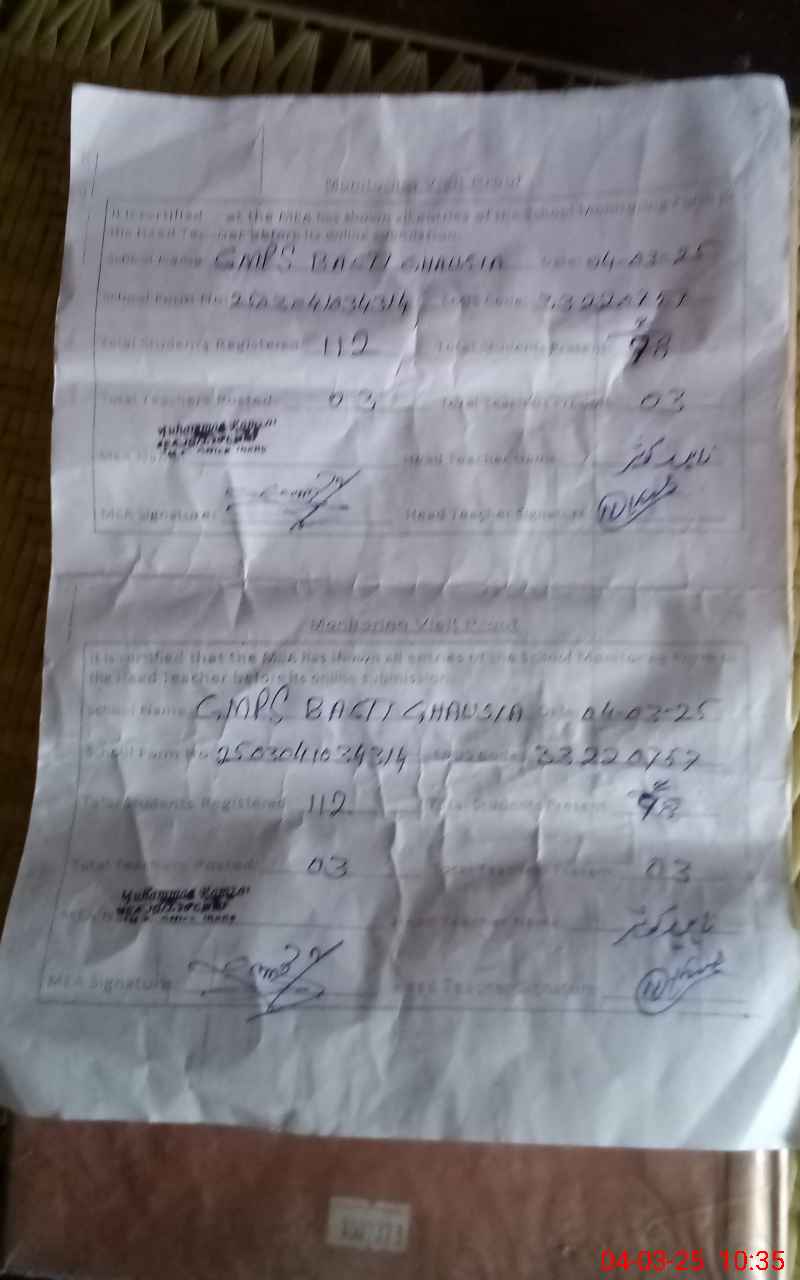 Monitoring Visit Proof
It is certified at the MEA has shown all entries of the School Monitoring Form to
the Head Teacher before its online submission.
School Name GMPS BASTI GHAUSIA Date 04-03-25
School Form No 2503041034314 Code 33220757
Total Students Registered 112 Total Students Present 98
Total Teachers Posted 03 Total Teachers Present 03
Muhammad
MEA Head Teacher Name
MEA Signature: Head Teacher Signature
Monitoring Visit Proof
It is certified that the MEA has shown all entries of the School Monitoring Form to
the Head Teacher before its online submission.
School Name GMPS BASTI GHAUSIA Date 04-03-25
School Form No 2503041034314 Code 33220757
Total Students Registered 112 Total Students Present 98
Total Teachers Posted 03 Teachers Present 03
Muhammad
Head Teacher Name
MEA Signature: Head Teacher Signature
04-03-25 10:35